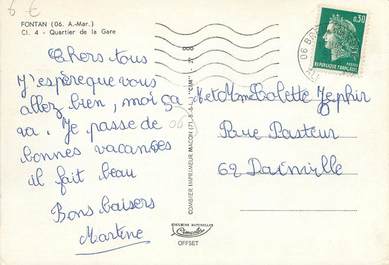 6 €
FONTAN (06. A.-Mar.)
Cl. 4 - Quartier de la Gare
Chers tous
J'espère que vous
allez bien, moi ça
va. Je passe de
bonnes vacances
il fait beau
Bons baisers
Martine
COMBIER IMPRIMEUR MACON (71-S.-L.) "CIM"
OFFSET
0,30
REPUBLIQUE FRANÇAISE
POSTES
06
M et Mme Colette Zephir
Rue Pasteur
62 Dainville